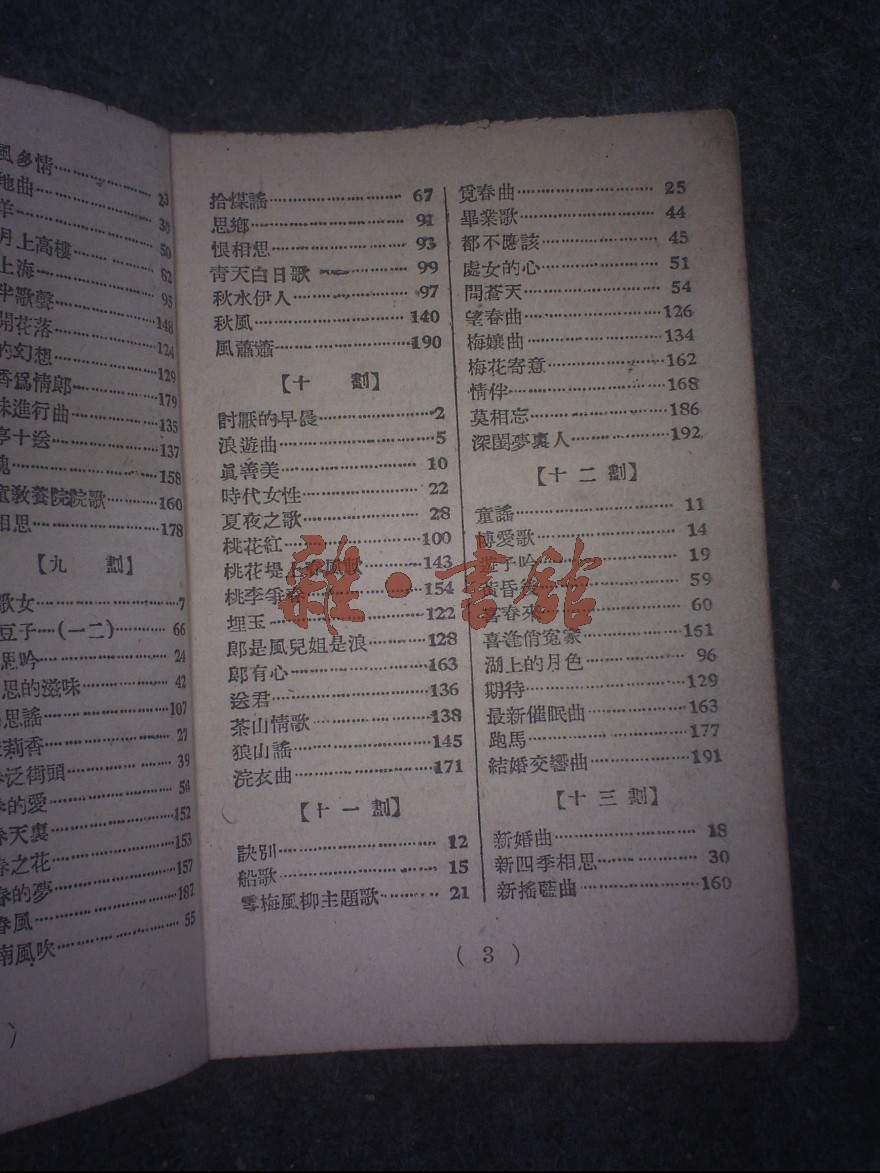 風多情
地曲 23
羊 30
月上高樓 50
上海 62
半歌聲 95
開花落 148
的幻想 124
香爲情郎 129
妹進行曲 179
亭十送 135
137
158
童教養院院歌 160
相思 178
【九 劃】
歌女 7
豆子—(一二) 66
思吟 24
思的滋味 42
思謠 107
茉莉香 27
春泛街頭 39
春的愛 58
春天裏 152
春之花 153
春的夢 157
春風 187
南風吹 55
拾煤謠 67
思鄉 91
恨相思 93
靑天白日歌 99
秋水伊人 97
秋風 140
風蕭蕭 190
【十 劃】
討厭的早晨 2
浪遊曲 5
眞善美 10
時代女性 22
夏夜之歌 28
桃花紅 100
桃花堤上春風 143
桃李爭春 154
埋玉 122
郞是風兒姐是浪 128
郞有心 163
送君 136
茶山情歌 138
狼山謠 145
浣衣曲 171
【十一劃】
訣別 12
船歌 15
雪梅風柳主題歌 21
覓春曲 25
畢業歌 44
都不應該 45
處女的心 51
問蒼天 54
望春曲 126
梅孃曲 134
梅花寄意 162
情伴 168
莫相忘 186
深閨夢裏人 192
【十二劃】
童謠 11
博愛歌 14
遊子吟 19
黃昏後 59
喜春來 60
喜逢俏冤家 161
湖上的月色 96
期待 129
最新催眠曲 163
跑馬 177
結婚交響曲 191
【十三劃】
新婚曲 18
新四季相思 30
新搖藍曲 160
( 3 )
)
雜·書館